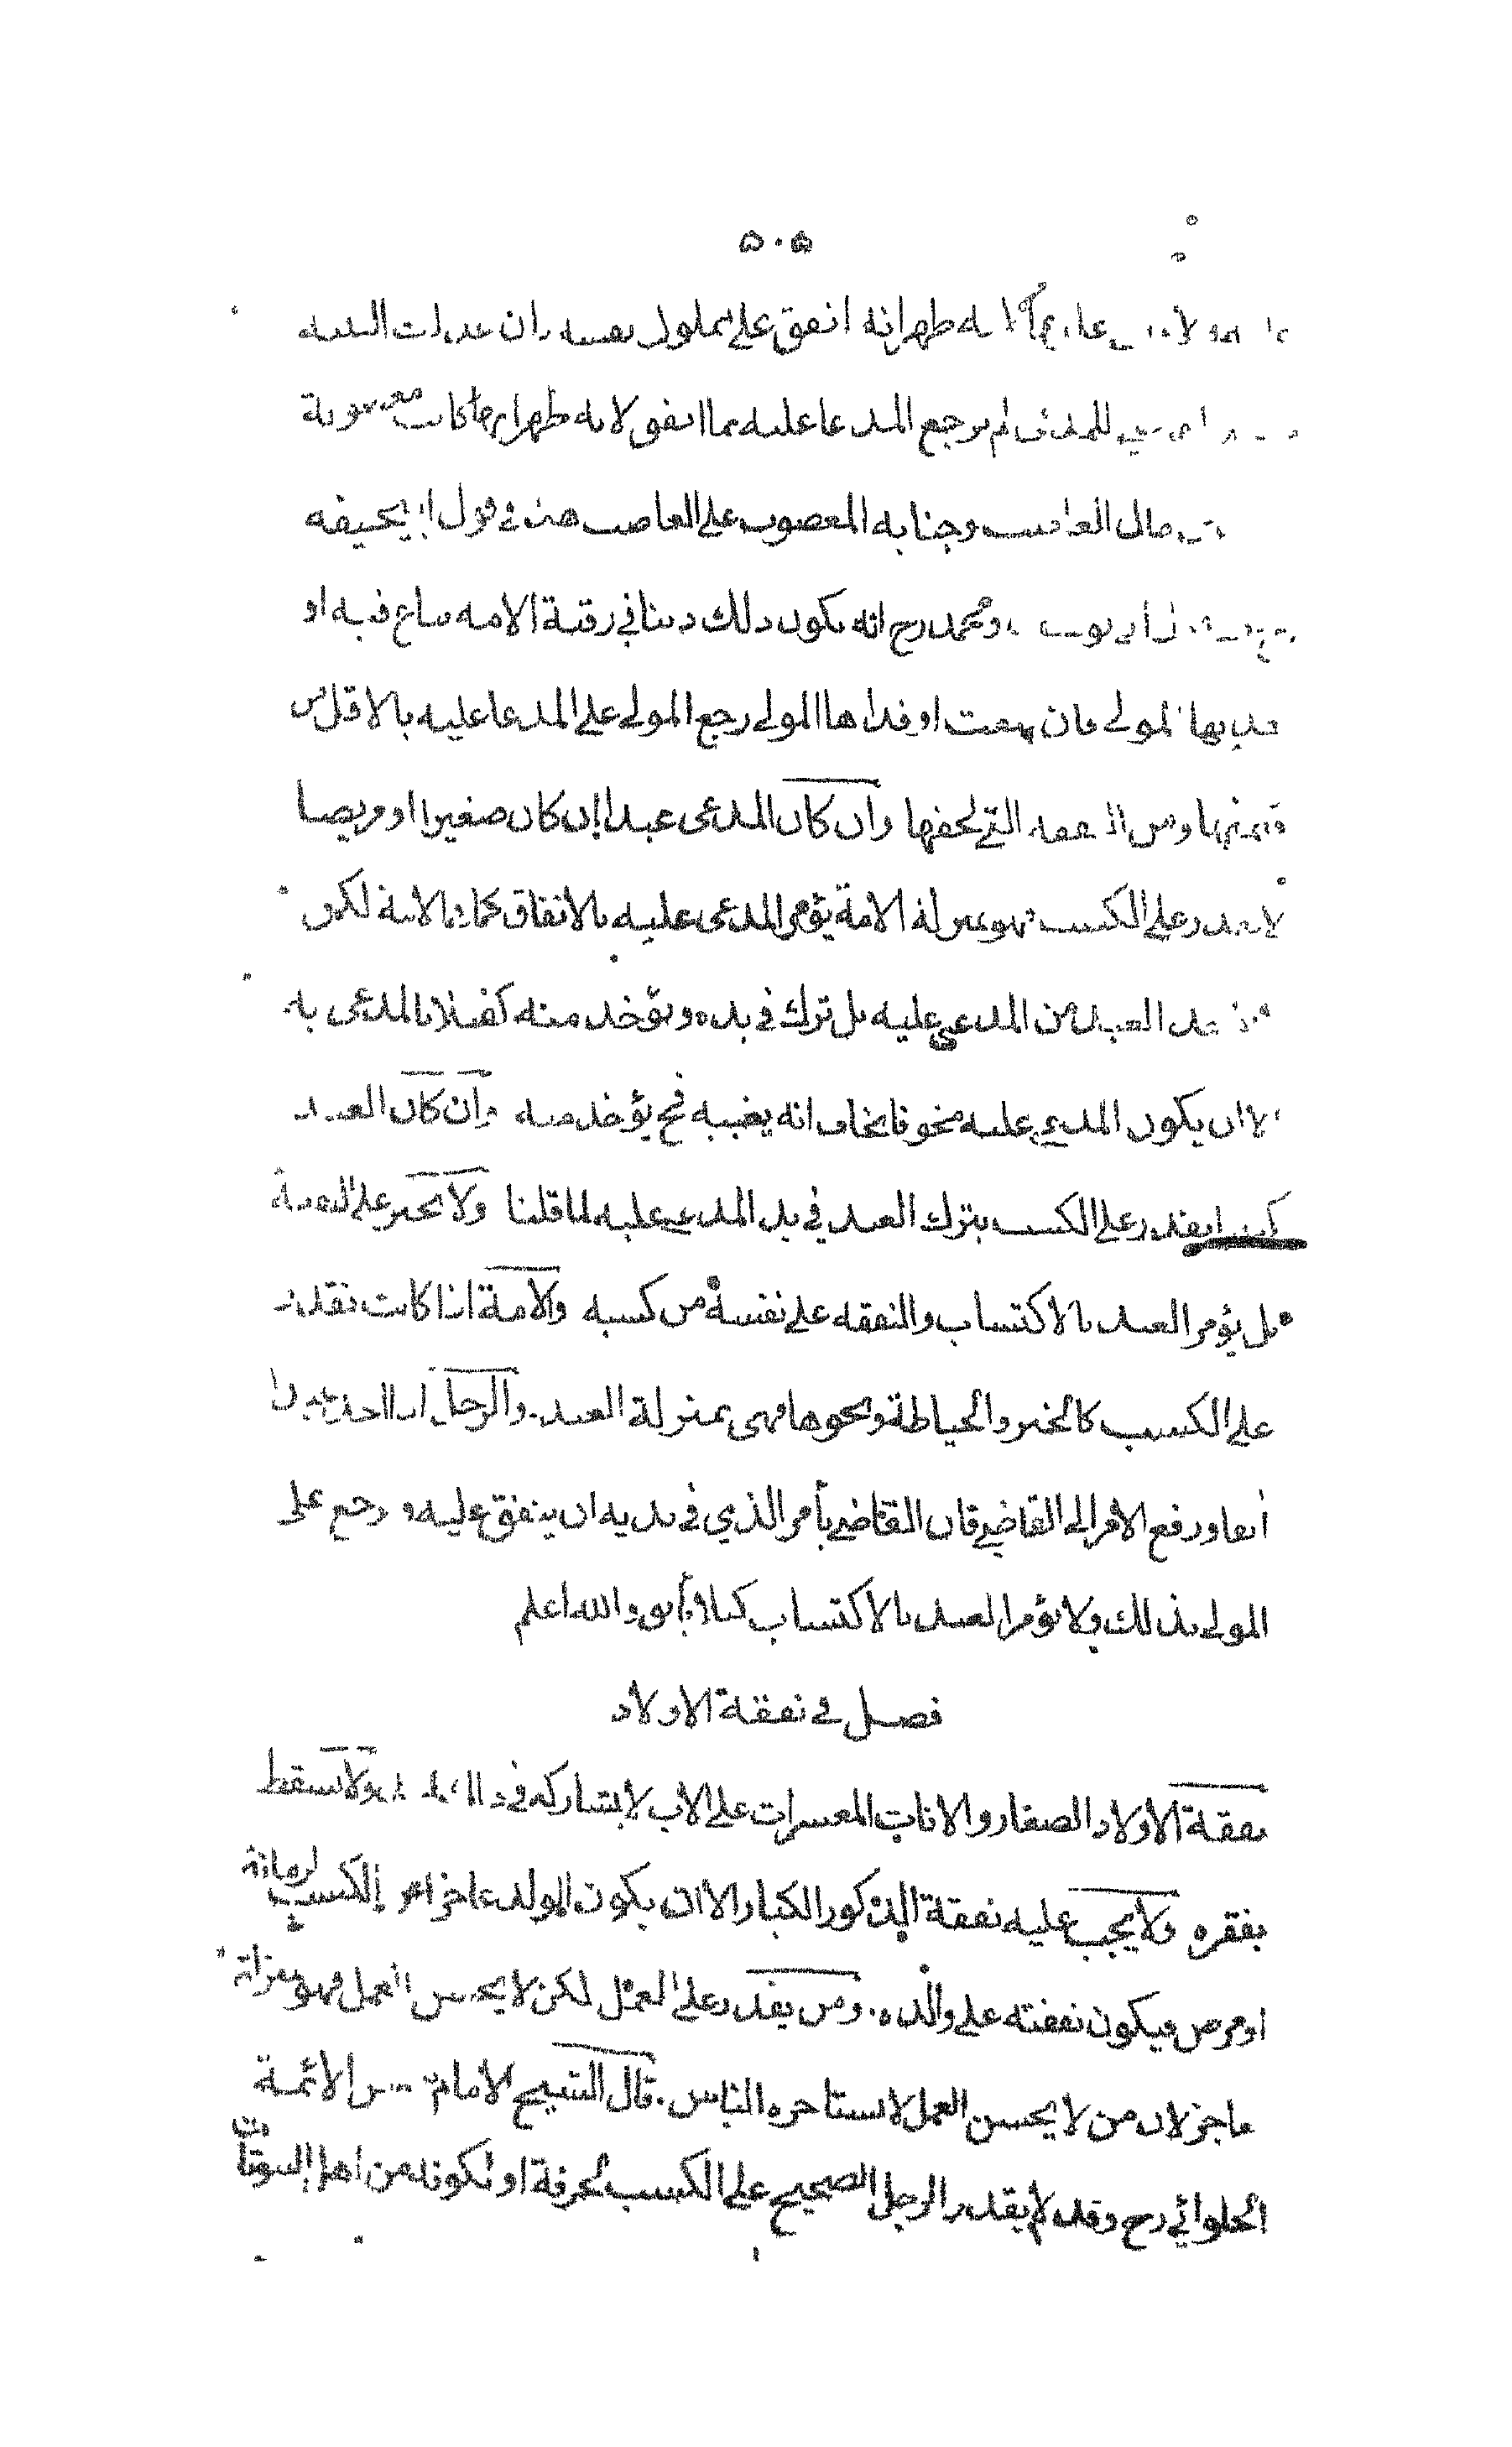 ٥٠٥
لانه ظهر انه انفق على مملول نفسه وان عدلت البينه
للمدعى لم يرجع المدعا عليه بما انفق لانه ظهر انها كانت مغصوبة
مال الغاصب وجنايه المغصوب على الغاصب هدر في قول ابي حنيفه
ابي يوسف ومحمد رح انه يكون ذلك دينا في رقبة الامه تباع فيه او
يفديها المولى فان بيعت او فداها المولى رجع المولى على المدعا عليه بالاقل من
قيمتها ومن النفقه التي لحقها وان كان المدعى عبدا ان كان صغيرا او مريضا
لا يقدر على الكسب فهو بمنزلة الامة يؤمر المدعى عليه بالانفاق كما في الامة لكن
العبد من المدعى عليه بل ترك في يده ويؤخذ منه كفيلا بالمدعى به
الا ان يكون المدعى عليه مخوفا يخاف انه يغيبه فح يؤخذ منه وان كان العبد
كبيرا يقدر على الكسب يترك العبد في يد المدعى عليه لما قلنا ولا يجبر على النفقة
بل يؤمر العبد بالاكتساب والنفقه على نفسه من كسبه والامة اذا كانت تقدر
على الكسب كالخبز والخياطة ونحوها فهي بمنزلة العبد والرجل اذا اخذ عبدا
ابقا ورفع الامر الى القاضي فان القاضي يأمر الذي في يديه ان ينفق عليه ورجع على
المولى بذلك ولا يؤمر العبد بالاكتساب كيلا يأبق والله اعلم
فصل في نفقة الاولاد
نفقة الاولاد الصغار والاناث المعسرات على الاب لا يشاركه في ذلك احد ولا تسقط
بفقره ولا يجب عليه نفقة الذكور الكبار الا ان يكون الولد عاجزا عن الكسب لزمانة
او مرض فيكون نفقته على والده ومن يقدر على العمل لكن لا يحسن العمل فهو بمنزلة
عاجز لان من لا يحسن العمل لا يستاجره الناس قال الشيخ الامام شمس الائمة
الحلوائي رح وقد لا يقدر الرجل الصحيح على الكسب لحرفة او لكونه من اهل البيوتات